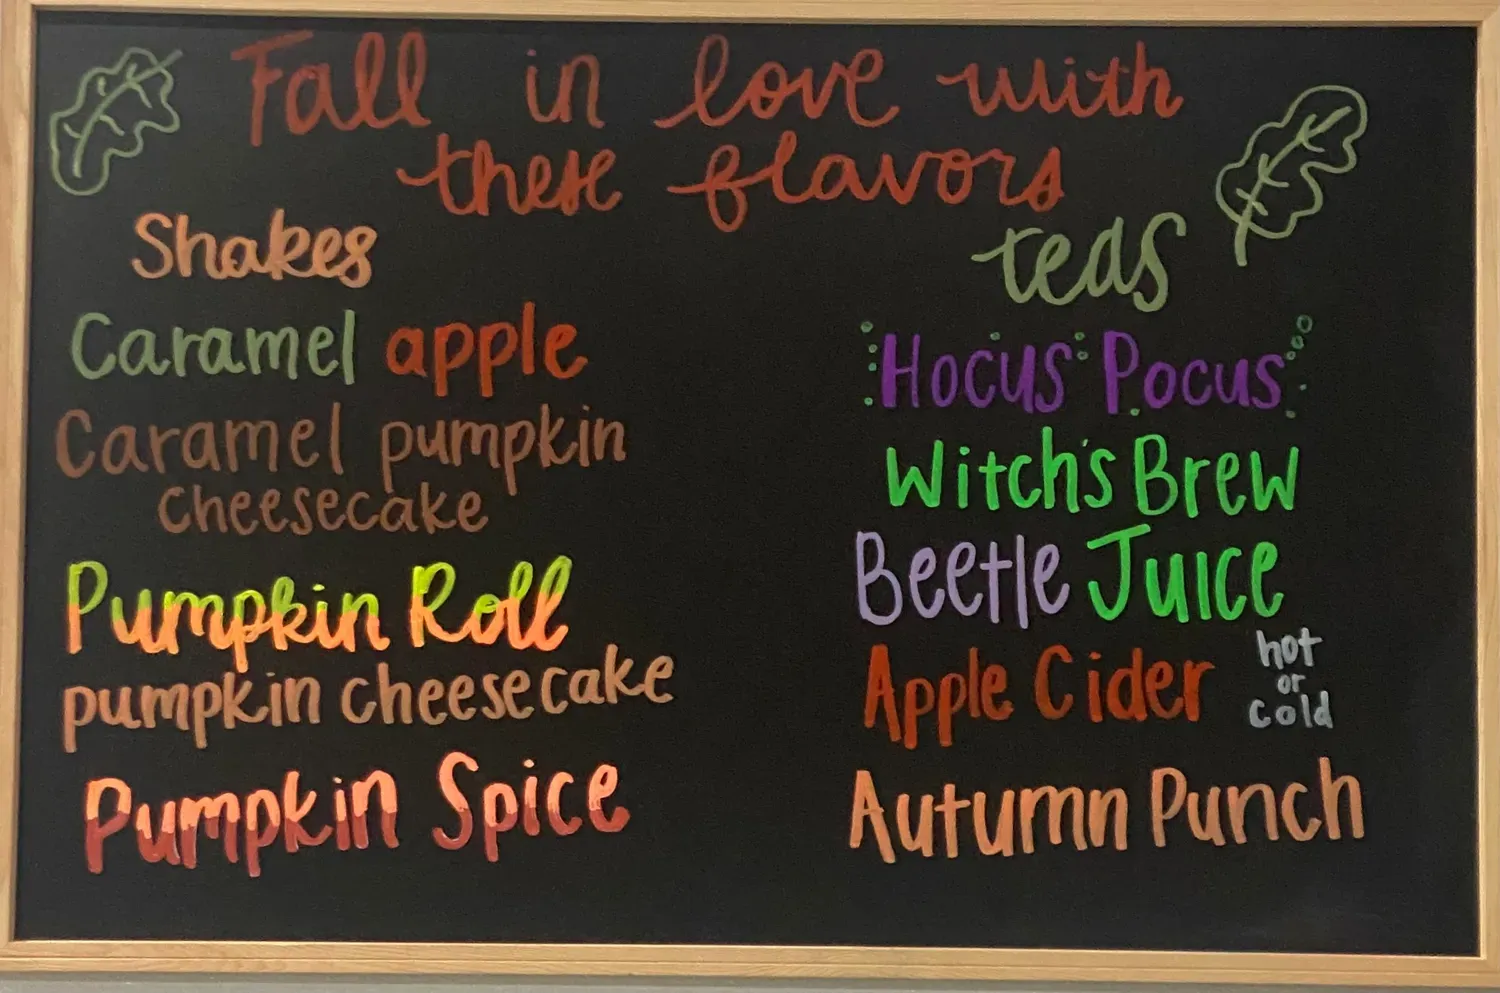 Fall in love with
these flavors
Shakes
Caramel apple
Caramel pumpkin
cheesecake
Pumpkin Roll
pumpkin cheesecake
Pumpkin Spice
teas
Hocus Pocus
Witch's Brew
Beetle Juice
Apple Cider hot
or
cold
Autumn Punch